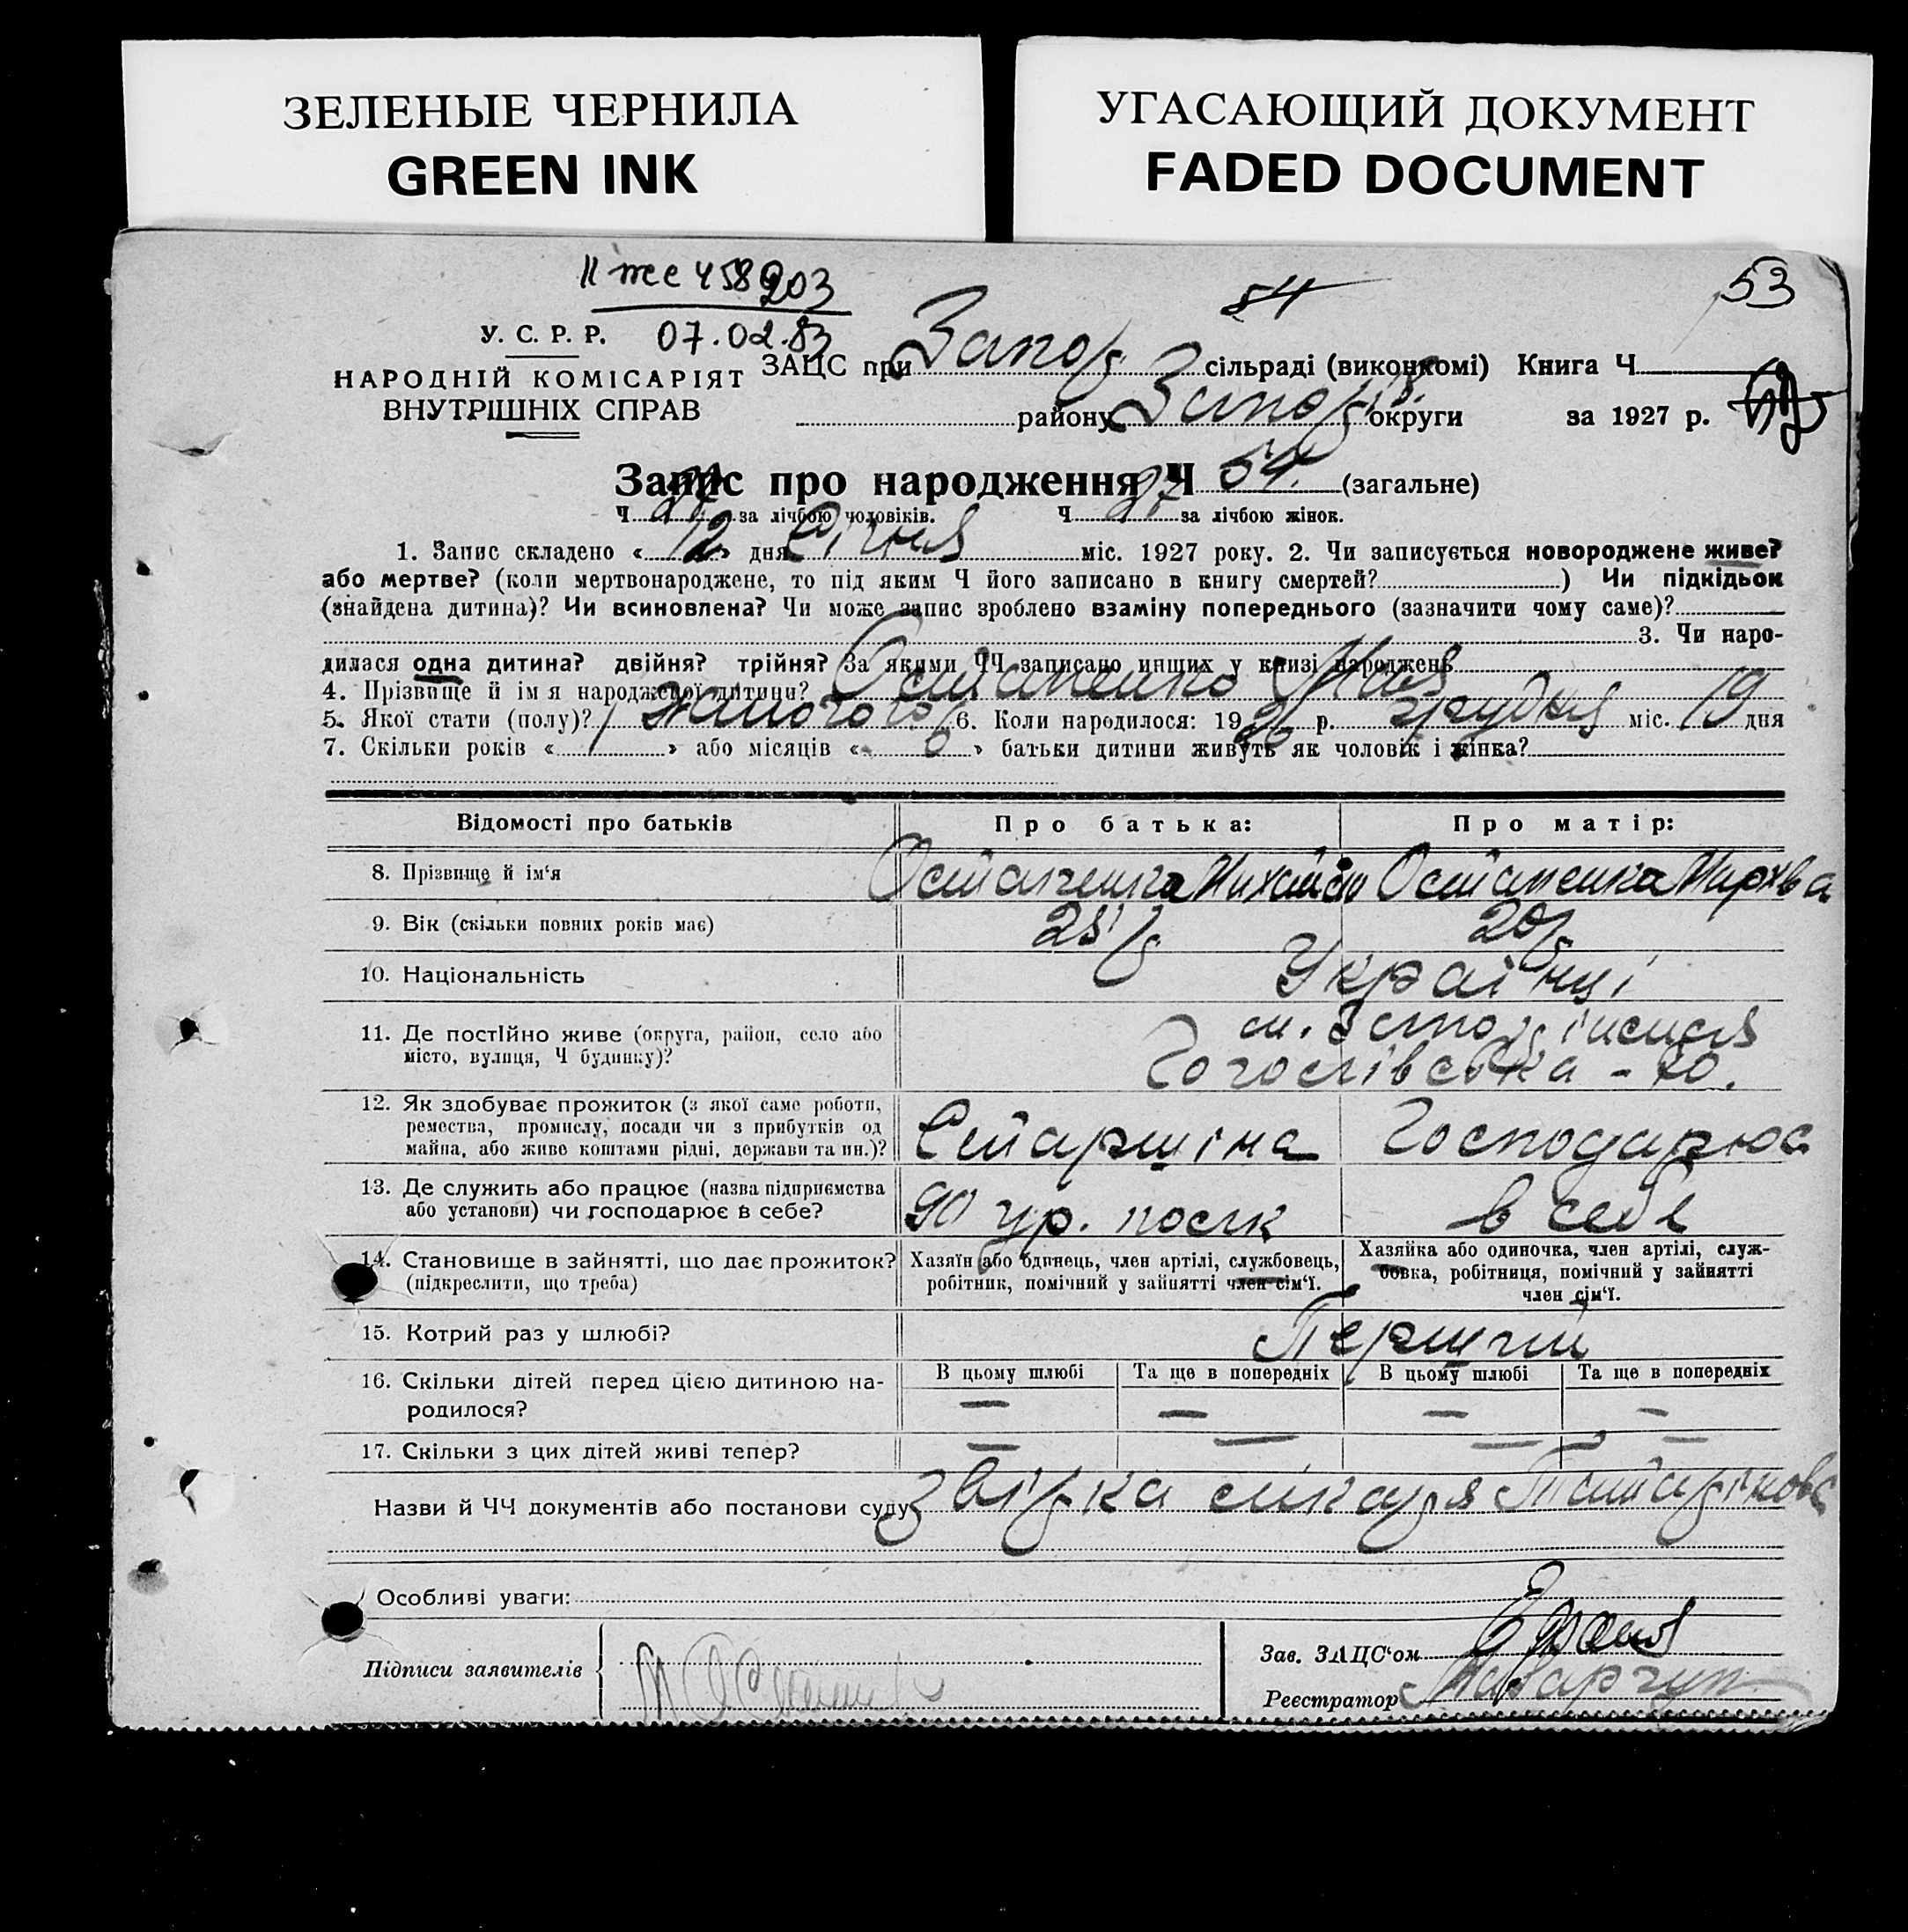 ЗЕЛЕНЫЕ ЧЕРНИЛА
GREEN INK
УГАСАЮЩИЙ ДОКУМЕНТ
FADED DOCUMENT
458203
54
53
У. С. Р. Р. 07.02.83
НАРОДНІЙ КОМІСАРІЯТ
ВНУТРІШНІХ СПРАВ
ЗАЦС при Запоріз сільраді (виконкомі) Книга Ч
району Запоріз округи за 1927 р.
Запис про народження Ч 54. (загальне)
Ч за лічбою чоловіків. Ч 27 за лічбою жінок.
1. Запис складено « 12 » дня Січня міс. 1927 року. 2. Чи записується новороджене живе?
або мертве? (коли мертвонароджене, то під яким Ч його записано в книгу смертей? ) Чи підкідьок
(знайдена дитина)? Чи всиновлена? Чи може запис зроблено взаміну попереднього (зазначити чому саме)?
3. Чи наро-
дилася одна дитина? двійня? трійня? За якими ЧЧ записано инших у книзі народжень
4. Прізвище й ім'я народженої дитини? Остапенко
5. Якої статі (полу)? жіночого 6. Коли народилося: 1926 р. грудня міс. 19 дня
7. Скільки років « 1 » або місяців « » батьки дитини живуть як чоловік і жінка?
Відомості про батьків Про батька: Про матір:
8. Прізвище й ім'я Остапенко Михайло Остапенко
9. Вік (скільки повних років має) 25 20
10. Національність Українці
11. Де постійно живе (округа, район, село або
місто, вулиця, Ч будинку)?
м. Запоріжжя
12. Як здобуває прожиток (з якої саме роботи,
ремества, промислу, посади чи з прибутків од
майна, або живе коштами рідні, держави та ин.)?
Старшина Господарює
13. Де служить або працює (назва підприємства
або установи) чи господарює в себе?
90 полк в себе
14. Становище в зайнятті, що дає прожиток?
(підкреслити, що треба)
Хазяїн або одинець, член артілі, службовець,
робітник, помічний у зайнятті член сім'ї.
Хазяйка або одиночка, член артілі, служ-
бовка, робітниця, помічний у зайнятті
член сім'ї.
15. Котрий раз у шлюбі? Перший
16. Скільки дітей перед цією дитиною на-
родилося?
В цьому шлюбі Та ще в попередніх В цьому шлюбі Та ще в попередніх
— — — —
17. Скільки з цих дітей живі тепер? — — — —
Назви й ЧЧ документів або постанови суду лікаря
Особливі уваги:
Підписи заявителів
Зав. ЗАЦС'ом
Реєстратор